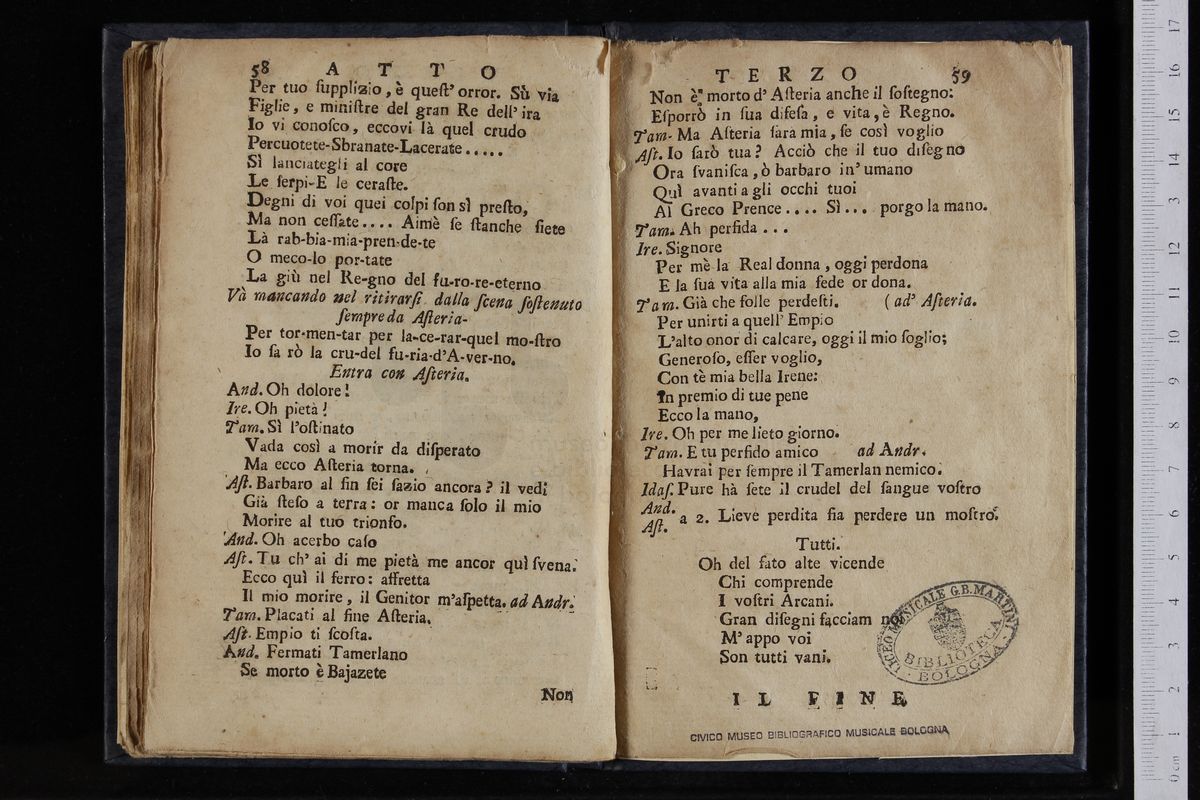 58 A T T O
Per tuo ſupplizio, è queſt' orror. Sù via
Figlie, e miniſtre del gran Re dell' ira
Io vi conoſco, eccovi là quel crudo
Percuotete-Sbranate-Lacerate.....
Sì lanciategli al core
Le ſerpi-E le ceraſte.
Degni di voi quei colpi ſon sì preſto,
Ma non ceſſate.... Aimè ſe ſtanche ſiete
Là rab-bia-mia-pren-de-te
O meco-lo por-tate
La giù nel Re-gno del fu-ro-re-eterno
Và mancando nel ritirarſi dalla ſcena ſoſtenuto
ſempre da Aſteria-
Per tor-men-tar per la-ce-rar-quel mo-ſtro
Io ſa rò la cru-del fu-ria-d'A-ver-no.
Entra con Aſteria.
And. Oh dolore!
Ire. Oh pietà!
Tam. Sì l'oſtinato
Vada così a morir da diſperato
Ma ecco Aſteria torna.
Aſt. Barbaro al fin ſei ſazio ancora? il vedi
Già ſteſo a terra: or manca ſolo il mio
Morire al tuo trionfo.
And. Oh acerbo caſo
Aſt. Tu ch' ai di me pietà me ancor quì ſvena.
Ecco quì il ferro: affretta
Il mio morire, il Genitor m'aſpetta. ad Andr.
Tam. Placati al fine Aſteria.
Aſt. Empio ti ſcoſta.
And. Fermati Tamerlano
Se morto è Bajazete
Non
T E R Z O 59
Non è morto d' Aſteria anche il ſoſtegno:
Eſporrò in ſua difeſa, e vita, è Regno.
Tam- Ma Aſteria ſara mia, ſe così voglio
Aſt. Io ſarò tua? Acciò che il tuo diſegno
Ora ſvaniſca, ò barbaro in' umano
Quì avanti a gli occhi tuoi
Al Greco Prence.... Sì... porgo la mano.
Tam. Ah perfida...
Ire. Signore
Per mè la Real donna, oggi perdona
E la ſua vita alla mia fede or dona.
Tam. Già che folle perdeſti. ( ad' Aſteria.
Per unirti a quell' Empio
L'alto onor di calcare, oggi il mio ſoglio;
Generoſo, eſſer voglio,
Con tè mia bella Irene:
In premio di tue pene
Ecco la mano,
Ire. Oh per me lieto giorno.
Tam. E tu perfido amico ad Andr.
Havrai per ſempre il Tamerlan nemico.
Idaſ. Pure hà ſete il crudel del ſangue voſtro
And.
Aſt. a 2. Lieve perdita fia perdere un moſtro.
Tutti.
Oh del fato alte vicende
Chi comprende
I voſtri Arcani.
Gran diſegni facciam noi
M' appo voi
Son tutti vani.
LICEO MUSICALE G.B. MARTINI
BIBLIOTECA
BOLOGNA
I L F I N E
CIVICO MUSEO BIBLIOGRAFICO MUSICALE BOLOGNA
0 cm 1 2 3 4 5 6 7 8 9 10 11 12 13 14 15 16 17